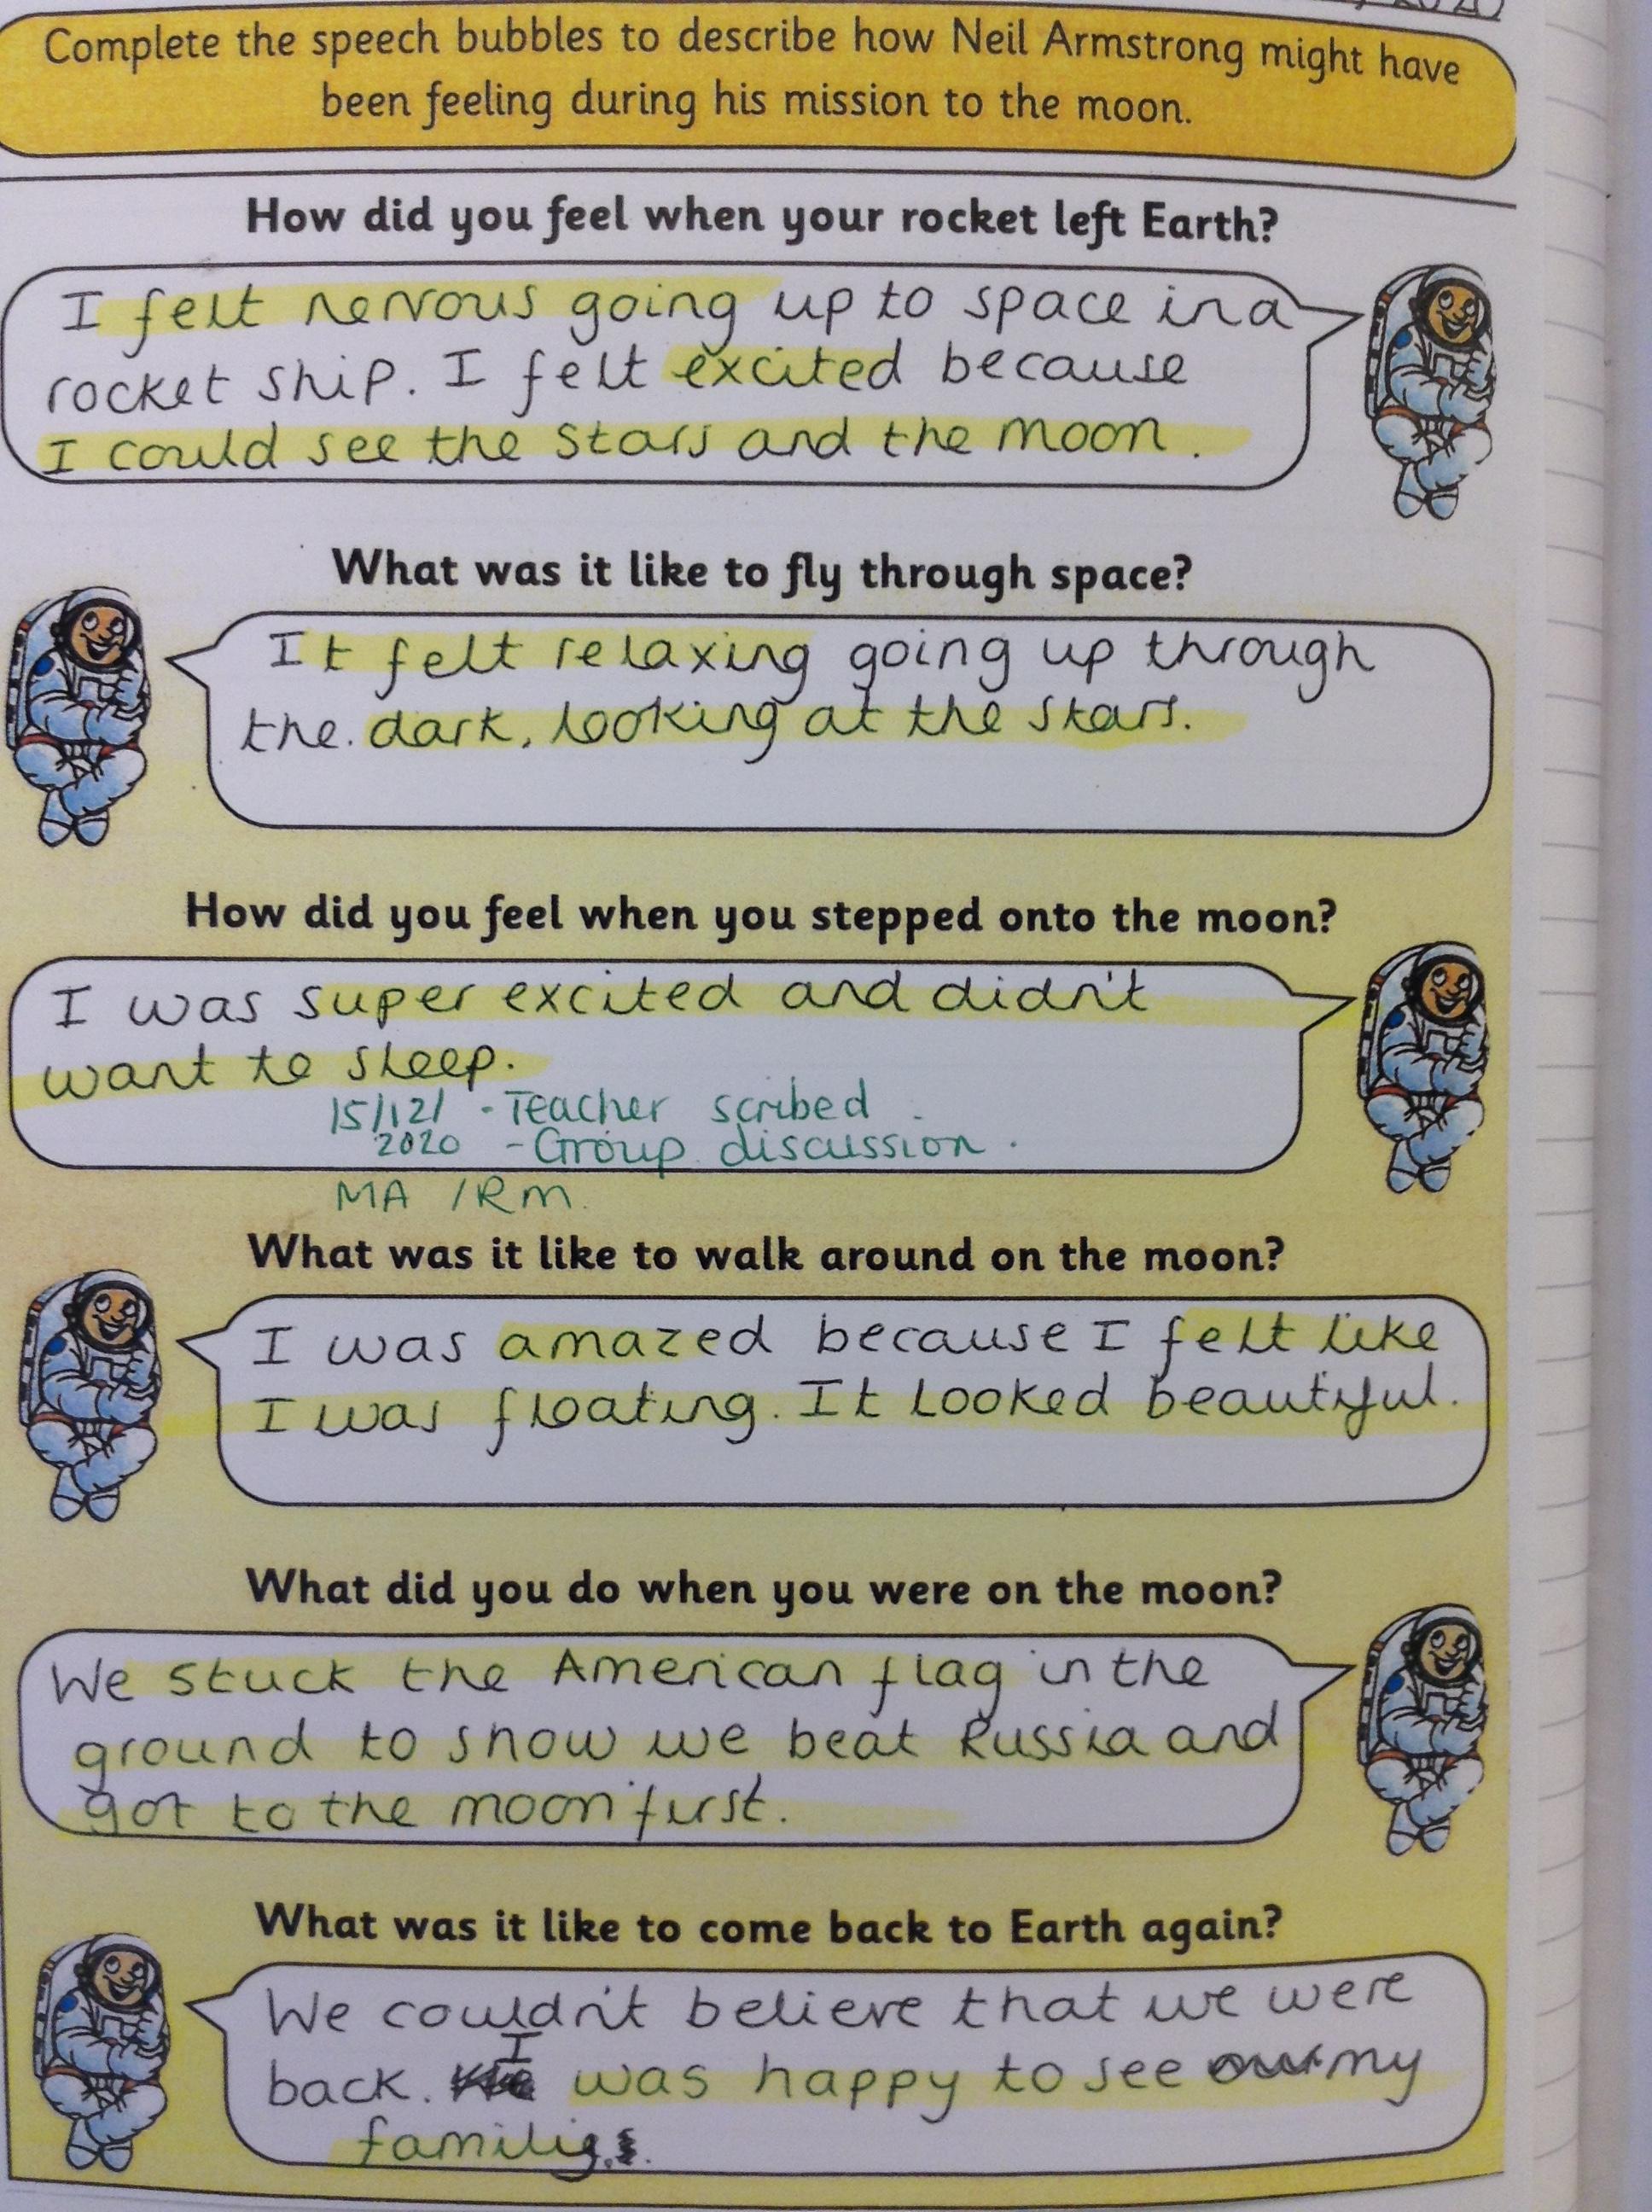 2020
Complete the speech bubbles to describe how Neil Armstrong might have
been feeling during his mission to the moon.
How did you feel when your rocket left Earth?
I felt nervous going up to space in a
rocket ship. I felt excited because
I could see the stars and the moon.
What was it like to fly through space?
It felt relaxing going up through
the. dark, looking at the stars.
How did you feel when you stepped onto the moon?
I was super excited and didn't
want to sleep.
15/12/ - Teacher scribed
2020 - Group discussion.
MA /RM.
What was it like to walk around on the moon?
I was amazed because I felt like
I was floating. It looked beautiful.
What did you do when you were on the moon?
We stuck the American flag in the
ground to show we beat Russia and
got to the moon first.
What was it like to come back to Earth again?
We couldn't believe that we were
back. I was happy to see my
family.